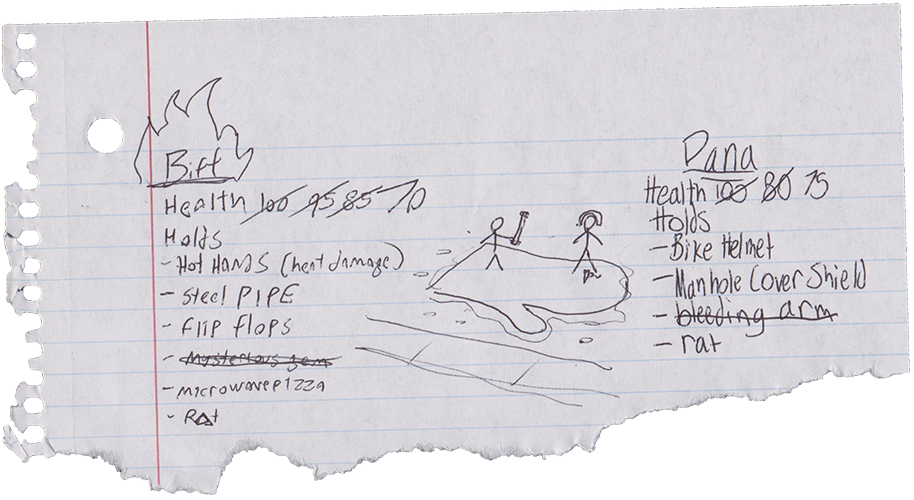 Biff
Health 100 95 85 70
Holds
- Hot Hands (heat damage)
- Steel PIPE
- flip flops
- Mysterious gem
- microwave pizza
- Rat
Dana
Health 100 80 75
Holds
- Bike Helmet
- Manhole Cover Shield
- bleeding arm
- rat